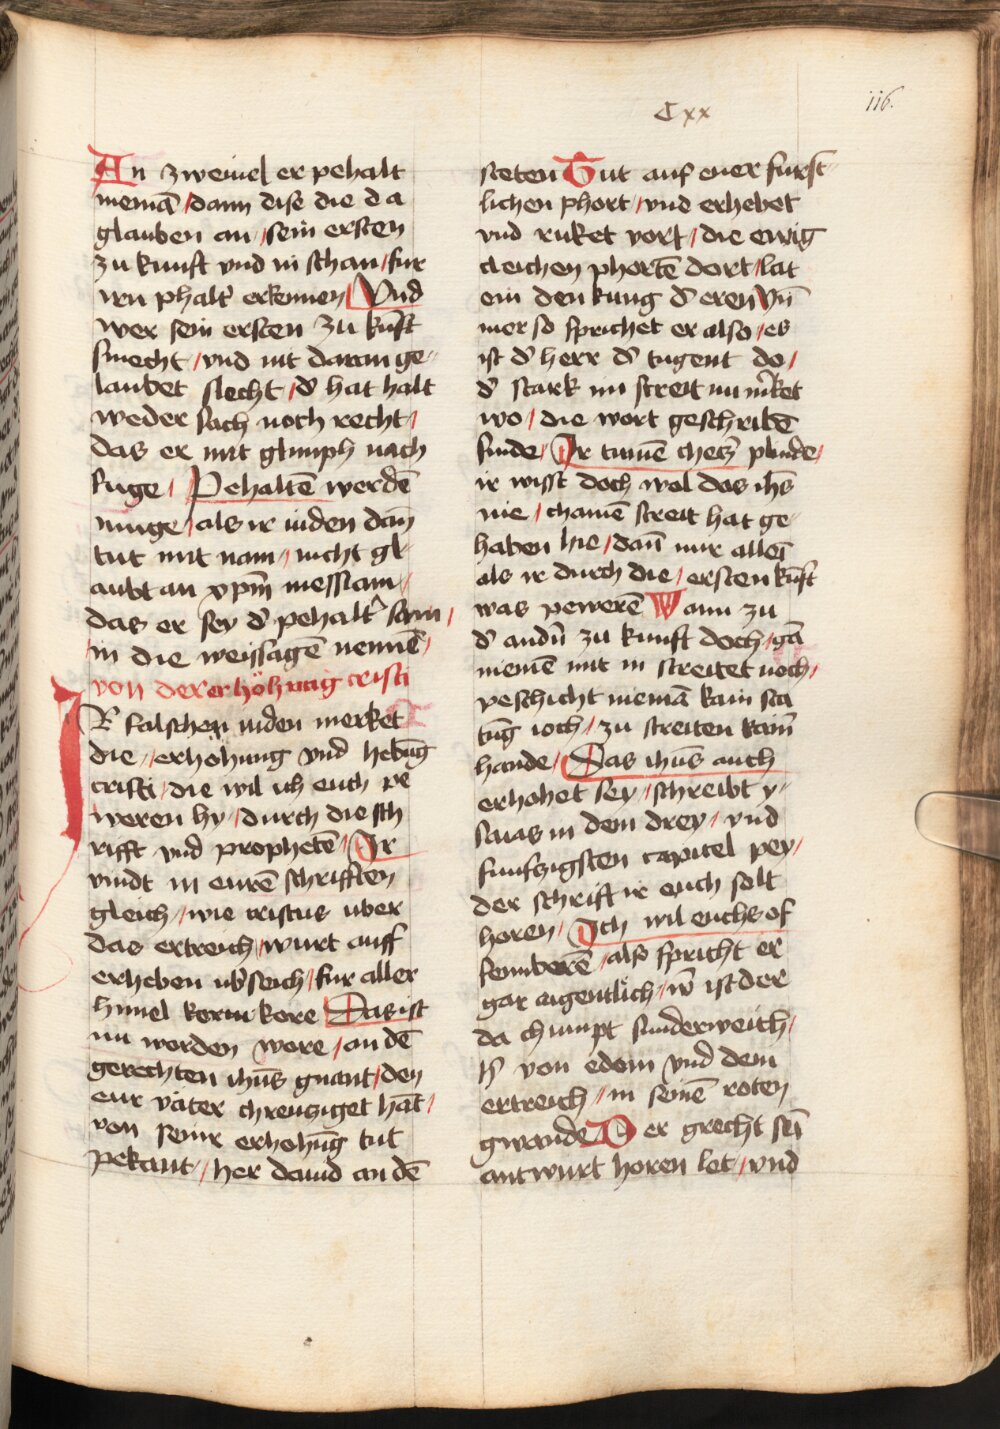 Cxx
116.
An zweiuel er pehalt
niemā / dann dise die da
glauben an / sein ersten
zu kunft vnd in schan / fur
irn phalt' erkennen / Vnd
wer sein ersten zu kūft
smecht / vnd nit daran ge-
laubet slecht / d' hat halt
weder sach noch recht /
das er mit glimph nach
fuge / Pehaltē werdē
muge / als ir iuden dan̄
tut mit nam / nicht gl-
aubt an xpm̄ messiam /
das er sey d' pehalt' sam /
in die weissagē nennē /
von der erhöhung cristi
IR falschen iuden merket
die / erhöhung vnd hebūg
cristi / die wil ich euch pe
weren hy / durch die sch
rifft vnd prophetē / Ir
vindt in eurē schrifften
gleich / wie cristus uber
das ertreich / wurt auff
erheben ub'seich / fur aller
himel korin kore / Das ist
nu worden wore / an dē
gerechten ihūs gnant / den
eur väter chreuziget hāt /
von seinr erhohūg tut
pekant / her dauid an dē
steten Tut auf euer furst-
lichen phort / vnd erhebet
vnd ruket vort / die ewig
cleichen phortē dort / lat
ein den kung d' eren Vn̄
mer so sprichet er also / es
ist d' herr d' tugent do /
d' stark im streit nu m'ket
wo / die wort geschribē
finde / Ir tumē checz' plinde /
ir wisst doch wol das ihs̄
nie / chainē streit hat ge-
haben hie / dan̄ mir alles
als ir durch die / ersten kūft
was pewerē Wann zu
d' andn̄ zu kunft doch / gā
niemē mit in streitet noch /
peschicht niemā kain sta
tūg ioch / zu streiten kain̄
hande / Das ihūs auch
erhohet sey / schreibt y-
saias in dem drey / vnd
funfzigsten capitel pey /
der schrift ir euch solt
horen / Ich wil euchs of
fennberē / also spricht er
gar aigentlich / w' ist der
da chumpt sunderweich /
is' von edom vnd dem
ertreich / in seinē roten
gwande Der grecht sein̄
antwurt horen let / vnd